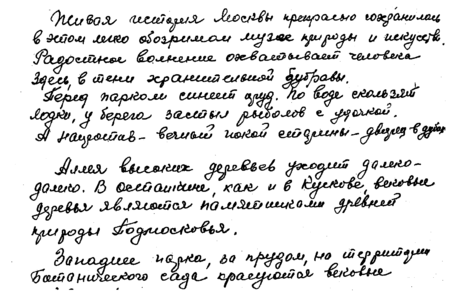 Живая история Москвы прекрасно сохранилась
в этом легко обозримом музее природы и искусств.
Радостное волнение охватывает человека
здесь, в тени хранительной дубравы.
Перед парком синеет пруд. По воде скользят
лодки, у берега застыл рыболов с удочкой.
А напротив – вечный покой старины – дворец в дубр
Аллея высоких деревьев уходит далеко-
далеко. В Останкине, как и в Кускове, вековые
деревья являются памятниками древней
природы Подмосковья.
Западнее парка, за прудом, на территории
Ботанического сада красуются вековые